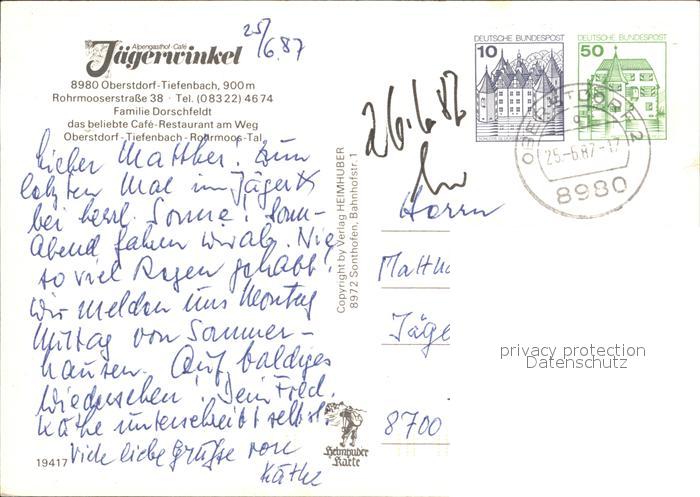 25/6.87
Alpengasthof-Café
Jägerwinkel
8980 Oberstdorf-Tiefenbach, 900 m
Rohrmooserstraße 38 · Tel. (08322) 4674
Familie Dorschfeldt
das beliebte Café-Restaurant am Weg
Oberstdorf-Tiefenbach-Rohrmoos-Tal
Lieber Matthes! Zum
letzten Mal im Jäger
bei herrl. Sonne! Sonn-
Abend fahren wir ab. Nie
so viel Regen gehabt!
Wir melden uns Montag
Mittag von Sommer-
hausen. Auf baldiges
Wiedersehen! Dein Fred.
Käthe unterschreibt selbst.
Viele liebe Grüße von
Käthe
19417
Copyright by Verlag HEIMHUBER
8972 Sonthofen, Bahnhofstr. 1
Heimhuber
Karte
DEUTSCHE BUNDESPOST
10
DEUTSCHE BUNDESPOST
50
OBERSTDORF 2
25.-6.87-17
8980
26.6.87
Herrn
Matth
Jäge
8700
privacy protection
Datenschutz